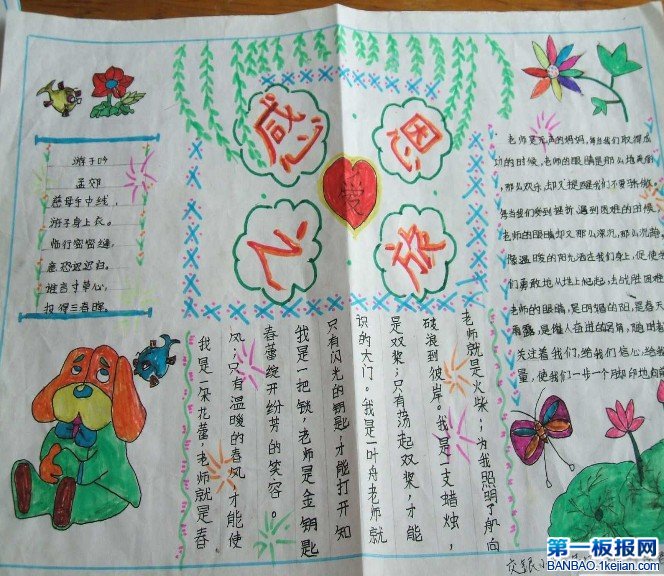 感恩
之旅
爱
游子吟
孟郊
慈母手中线,
游子身上衣。
临行密密缝,
意恐迟迟归。
谁言寸草心,
报得三春晖。
老师是无声的妈妈,每当我们取得成
功的时候,老师的眼睛是那么
,那么欢乐,却又提醒我们不要骄傲,
每当我们受到挫折遇到困难的时候,
老师的眼睛却又那么深沉,那么沉静,
像温暖的阳光洒在我们身上,促使
们勇敢地从地上爬起,去战胜困难
老师的眼睛,是明媚的阳,是春天
雨露,是催人奋进的号角,随时
关注着我们,给我们信心,给我
量,使我们一步一个脚印地向前
我是一朵花蕾,老师就是春
风;只有温暖的春风,才能使
春蕾绽开纷芳的笑容。
我是一把锁,老师是金钥匙
只有闪光的钥匙,才能打开知
识的大门。我是一叶舟老师就
是双桨;只有荡起双桨,才能
破浪到彼岸。我是一支蜡烛,
老师就是火柴;为我照明了航向
第一板报网
BANBAO.1kejian.com